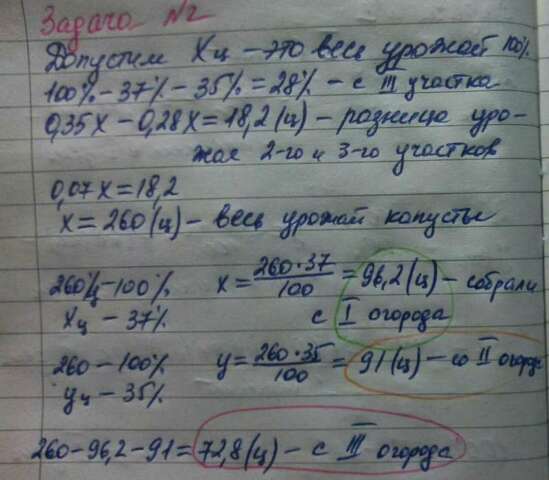 Задача №2
Допустим Xц – это весь урожай 100%
100% – 37% – 35% = 28% – с III участка
0,35X – 0,28X = 18,2 (ц) – разница уро-
жая 2-го и 3-го участков
0,07X = 18,2
X = 260 (ц) – весь урожай капусты
260ц – 100% x = 260·37/100 = 96,2 (ц) – собрали
Xц – 37% с I огорода
260 – 100% y = 260·35/100 = 91 (ц) – со II огоро
yц – 35%
260 – 96,2 – 91 = 72,8 (ц) – с III огорода